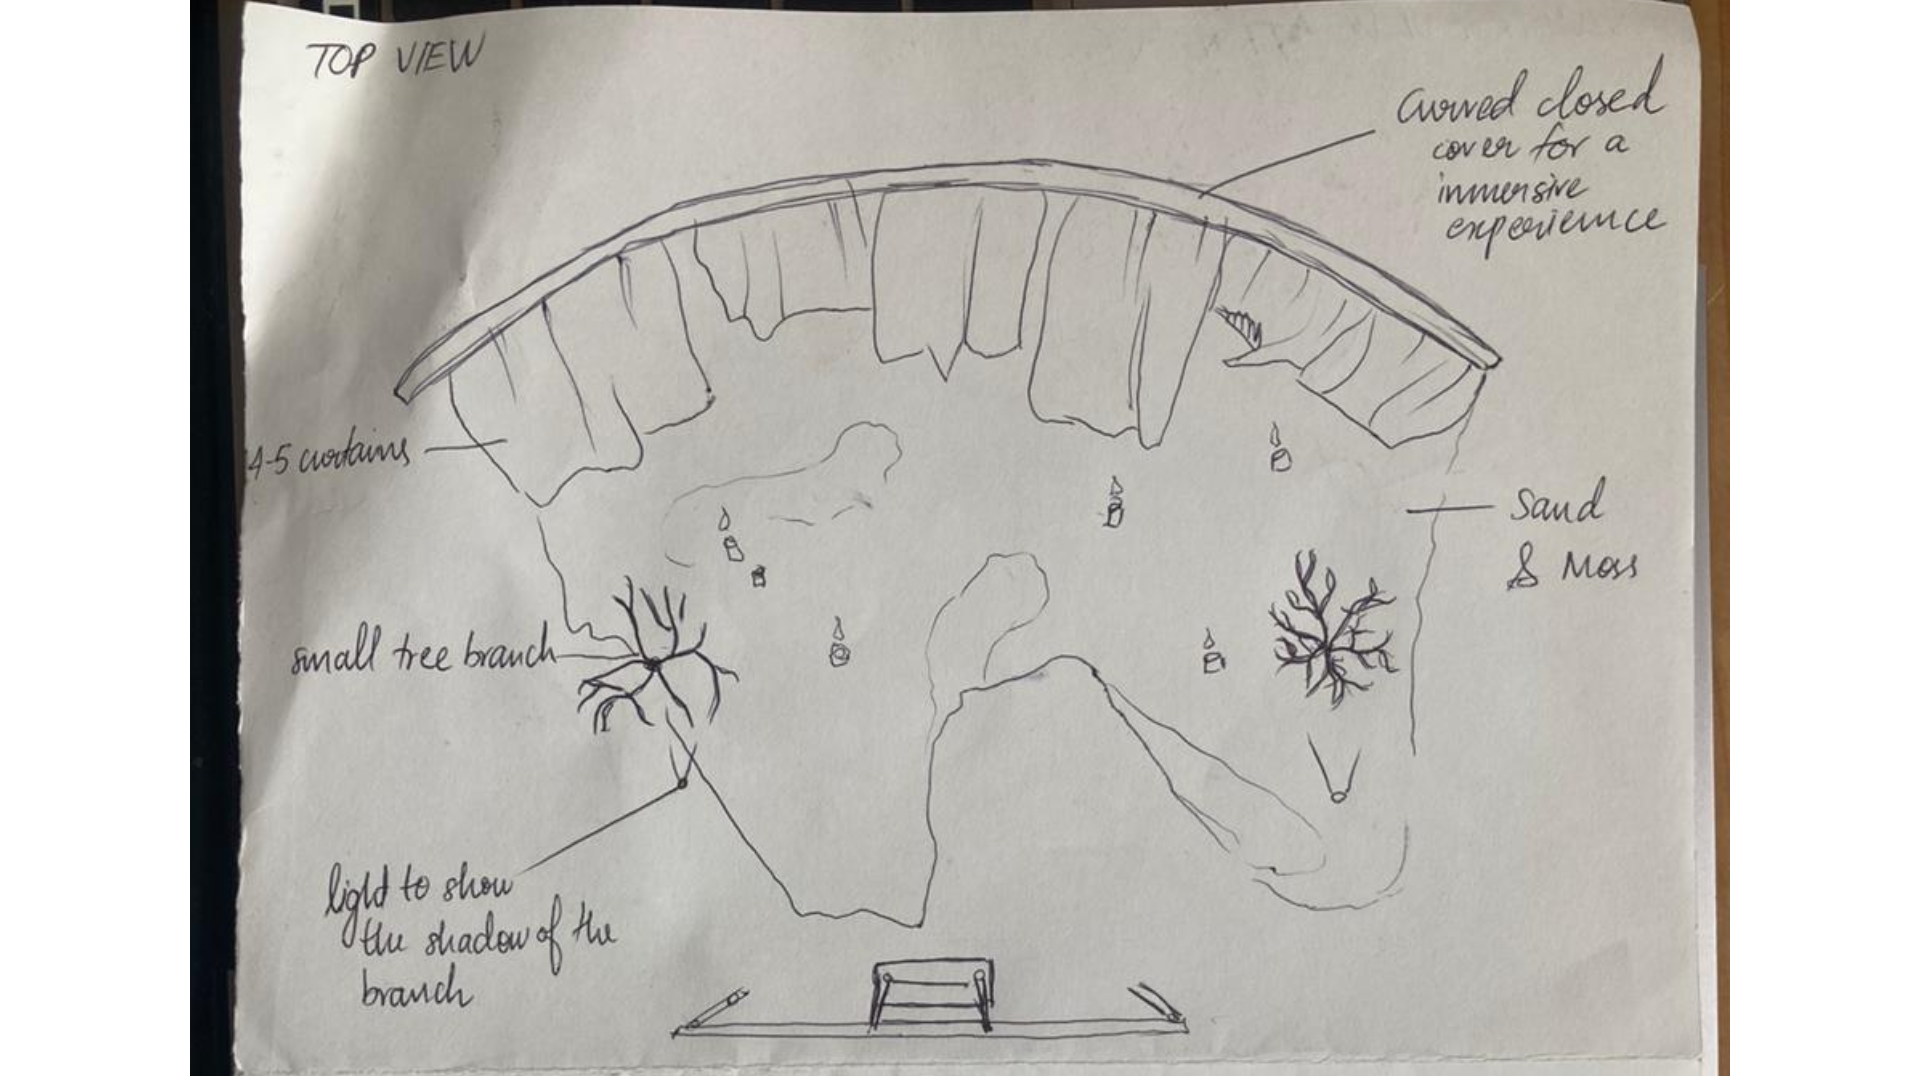 TOP VIEW
Curved closed
cover for a
immersive
experience
4-5 curtains
Sand
& Moss
small tree branch
light to show
the shadow of the
branch